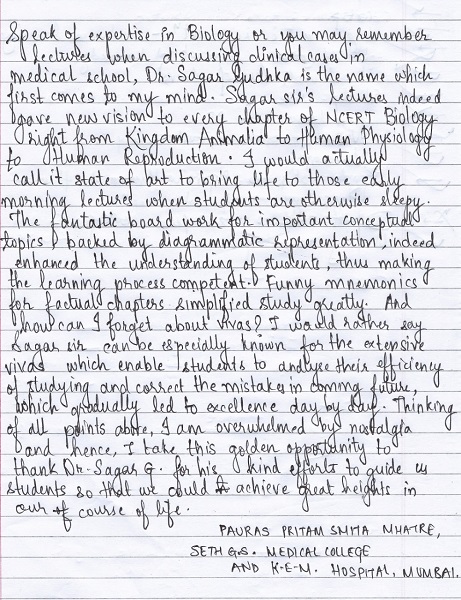 Speak of expertise in Biology or you may remember
lectures when discussing clinical cases in
medical school, Dr. Sagar Gudhka is the name which
first comes to my mind. Sagar sir's lectures indeed
gave new vision to every chapter of NCERT Biology
right from Kingdom Animalia to Human Physiology
to Human Reproduction. I would actually
call it state of art to bring life to those early
morning lectures when students are otherwise sleepy.
The fantastic board work for important conceptual
topics backed by diagrammatic representation, indeed
enhanced the understanding of students, thus making
the learning process competent. Funny mnemonics
for factual chapters simplified study greatly. And
how can I forget about vivas? I would rather say
Sagar sir can be especially known for the extensive
vivas which enable students to analyse their efficiency
of studying and correct the mistakes in coming future,
which gradually led to excellence day by day. Thinking
of all points above, I am overwhelmed by nostalgia
and hence, I take this golden opportunity to
thank Dr. Sagar G. for his kind efforts to guide us
students so that we could achieve great heights in
our of course of life.
PAURAS PRITAM SMITA MHATRE,
SETH G.S. MEDICAL COLLEGE
AND K.E.M. HOSPITAL, MUMBAI.